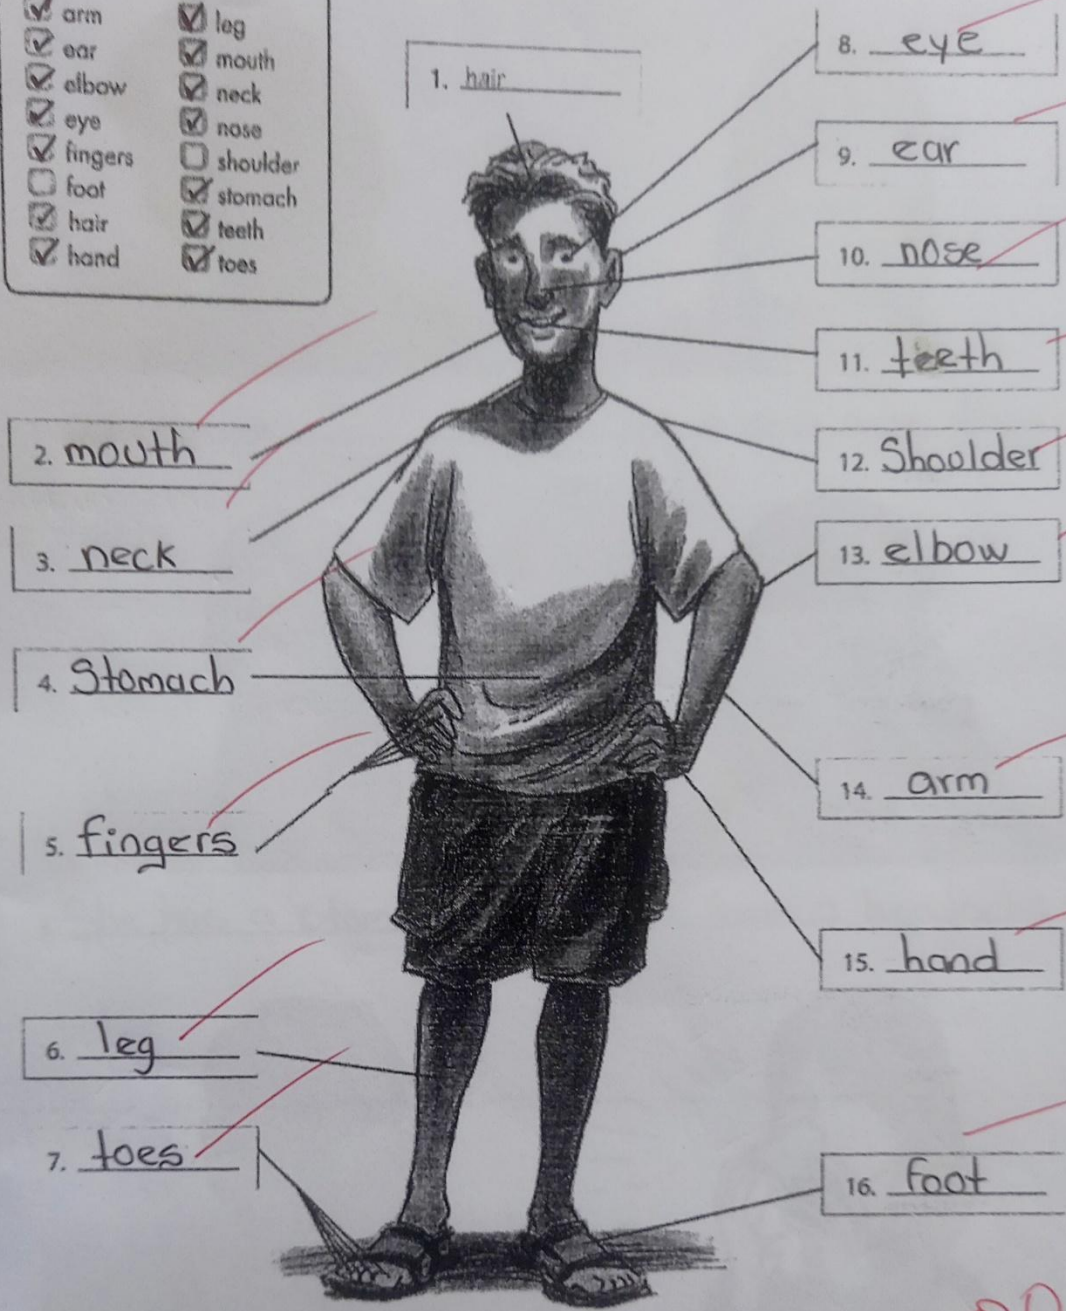 arm
ear
elbow
eye
fingers
foot
hair
hand
leg
mouth
neck
nose
shoulder
stomach
teeth
toes
1. hair
2. mouth
3. neck
4. Stomach
5. fingers
6. leg
7. toes
8. eye
9. ear
10. nose
11. teeth
12. Shoolder
13. elbow
14. arm
15. hand
16. foot